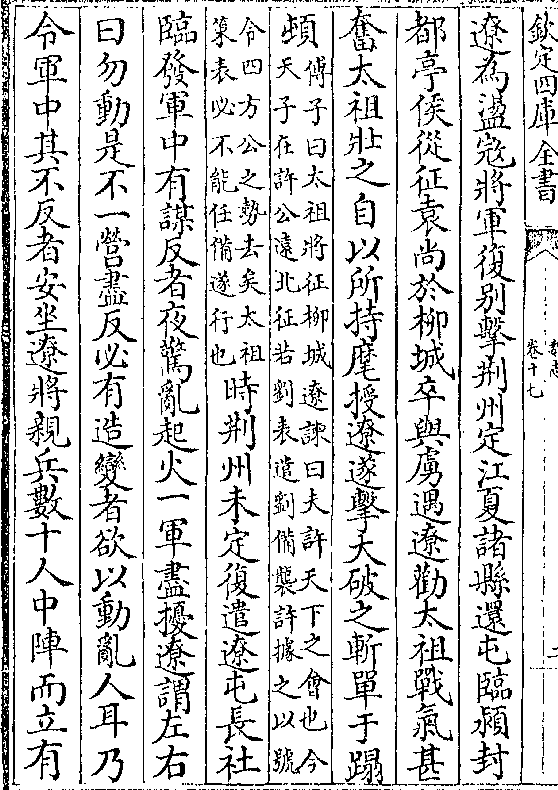 欽定四庫全書
魏志
卷十七
遼為盪寇將軍復别擊荆州定江夏諸縣還屯臨潁封
都亭侯從征袁尚於柳城卒與虜遇遼勸太祖戰氣甚
奮太祖壯之自以所持麾授遼遂擊大破之斬單于蹋
頓
傅子曰太祖將征柳城遼諫曰夫許天下之會也今
天子在許公遠北征若劉表遣劉備襲許據之以號
令四方公之勢去矣太祖
策表必不能任備遂行也
時荆州未定復遣遼屯長社
臨發軍中有謀反者夜驚亂起火一軍盡擾遼謂左右
曰勿動是不一營盡反必有造變者欲以動亂人耳乃
令軍中其不反者安坐遼將親兵數十人中陣而立有